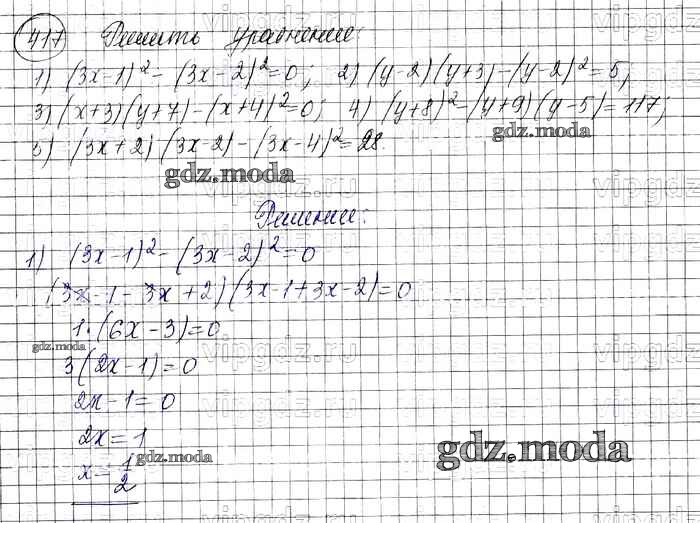 417 Решить уравнение:
1) (3x-1)²-(3x-2)²=0; 2) (y-2)(y+3)-(y-2)²=5;
3) (x+3)(y+7)-(x+4)²=0; 4) (y+8)²-(y+9)(y-5)=117;
5) (3x+2)(3x-2)-(3x-4)²=28.
gdz.moda
gdz.moda
Решение:
1) (3x-1)²-(3x-2)²=0
(3x-1-3x+2)(3x-1+3x-2)=0
1·(6x-3)=0
gdz.moda
3(2x-1)=0
2x-1=0
2x=1
gdz.moda
gdz.moda
x=1/2
vipgdz.ru